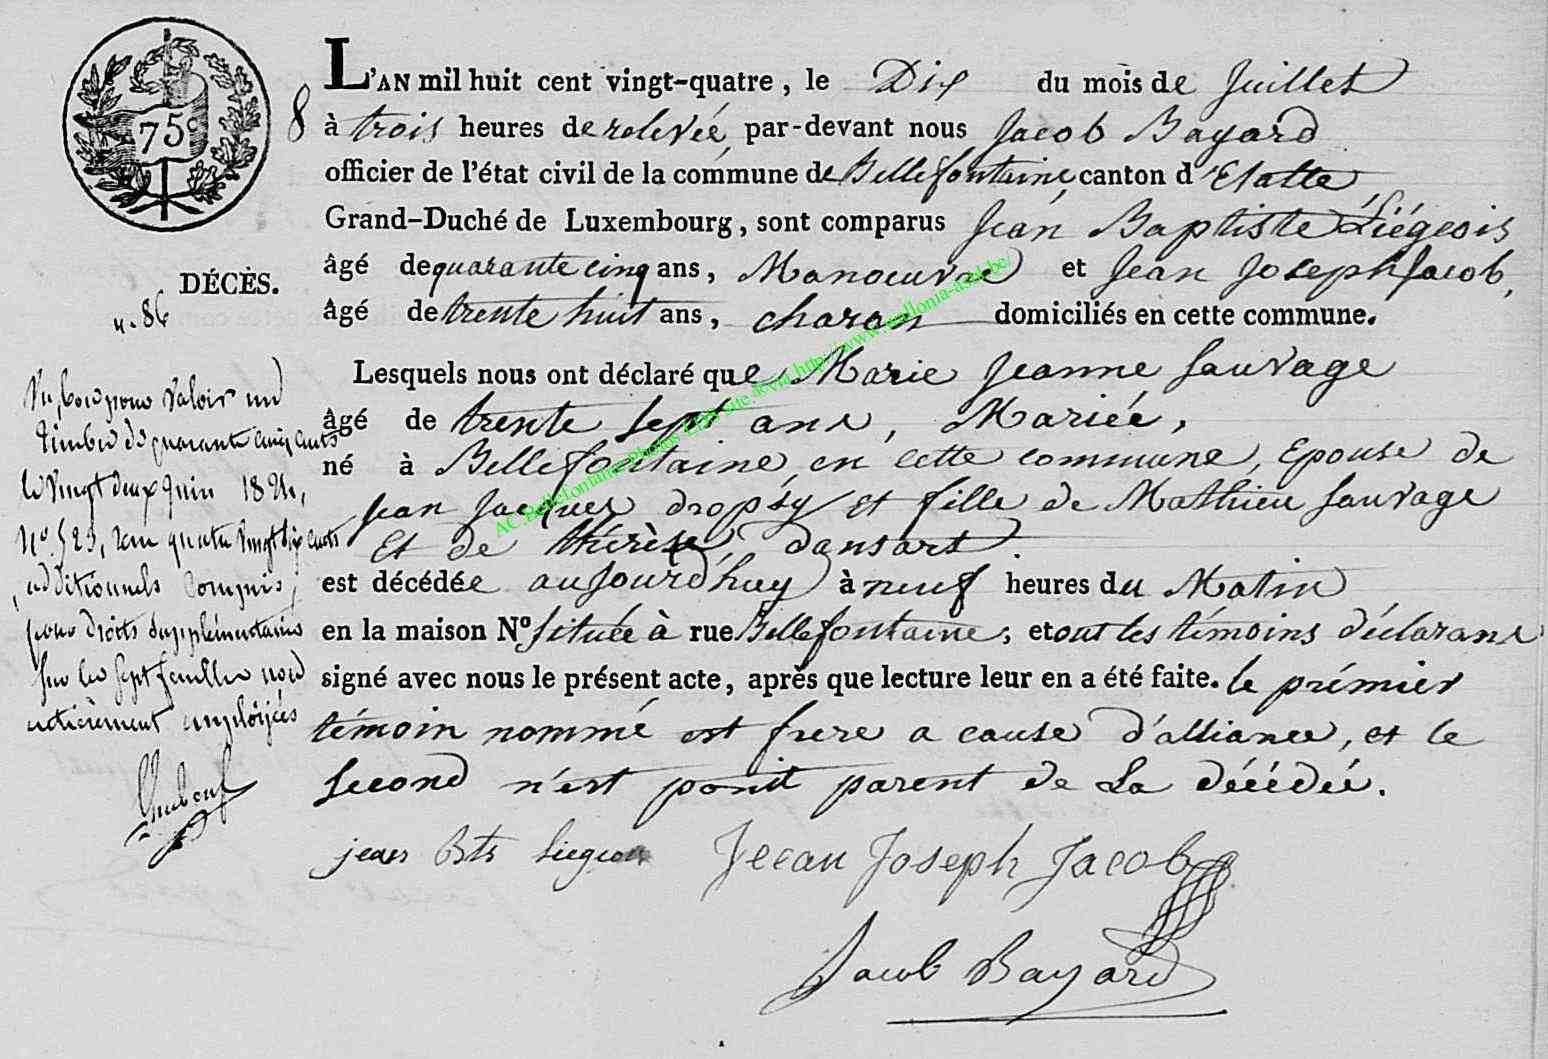 75c
8
L'AN mil huit cent vingt-quatre, le Dix du mois de Juillet
à trois heures de relevée, par-devant nous Jacob Bayard
officier de l'état civil de la commune de Bellefontaine, canton d'Etalle
Grand-Duché de Luxembourg, sont comparus Jean Baptiste Liégeois
âgé de quarante cinq ans, Manoeuvre et Jean Joseph Jacob,
âgé de trente huit ans, charon domiciliés en cette commune.
DÉCÈS.
n. 86
Lesquels nous ont déclaré que Marie Jeanne Sauvage
âgé de trente sept ans, Mariée,
né à Bellefontaine, en cette commune, Epouse de
Jean Jacques dropsy et fille de Mathieu Sauvage
Et de thérèse dansart.
est décédée aujourd'huy à neuf heures du Matin
en la maison N° située à rue Bellefontaine; et ont les témoins déclarans
signé avec nous le présent acte, après que lecture leur en a été faite. le prémier
témoin nommé est frere a cause d'alliance, et le
second n'est point parent de La décédée.
Vu, bon pour valoir un
timbre de quarante cinq cents
le vingt deux Juin 1824,
N° 523, quatre vingt dix cents
additionnels compris,
pour droits supplémentaires
sur les sept feuilles non
entièrement employées
jean Bte Liegeois Jeean Joseph Jacob
Jacob Bayard